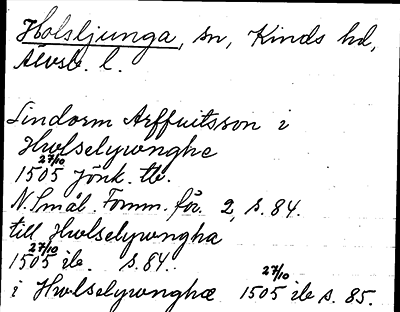 Holsljunga, sn, Kinds hd,
Älvsb. l.
Lindorm Arffuitsson i
Hwlselywnghe
1505 27/10 Jönk. tb.
N. Smål. Fornm. för. 2, s. 84.
till Hwlselywngha
1505 27/10 ib. s. 84.
i Hwlselywnghæ 1505 27/10 ib s. 85.